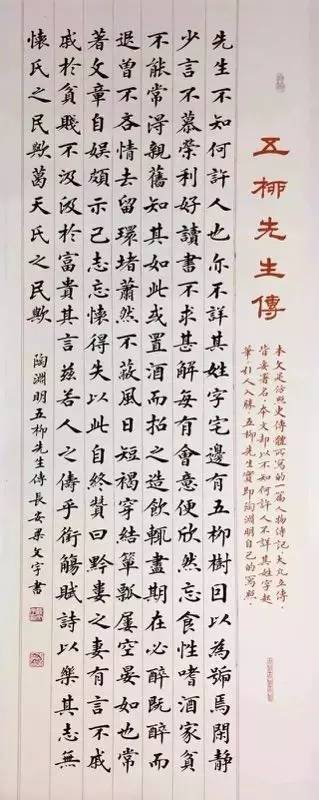 五柳先生傳
本文是仿照史傳體所寫的一篇人物傳記，大凡立傳，
皆要署名，本文却以不知何許人不詳其姓字起
筆，引人入勝，五柳先生實即陶淵明自己的寫照。
先生不知何許人也尓不詳其姓字宅邊有五柳樹因以為號焉閑靜
少言不慕榮利好讀書不求甚解每有會意便欣然忘食性嗜酒家貧
不能常得親舊知其如此或置酒而招之造飲輒盡期在必醉既醉而
退曾不吝情去留環堵蕭然不蔽風日短褐穿結簞瓢屢空晏如也常
著文章自娛頗示己志忘懷得失以此自終贊曰黔婁之妻有言不戚
戚於貧賤不汲汲於富貴其言兹若人之儔乎銜觴賦詩以樂其志無
懷氏之民歟葛天氏之民歟
陶淵明五柳先生傳長安梁文字書